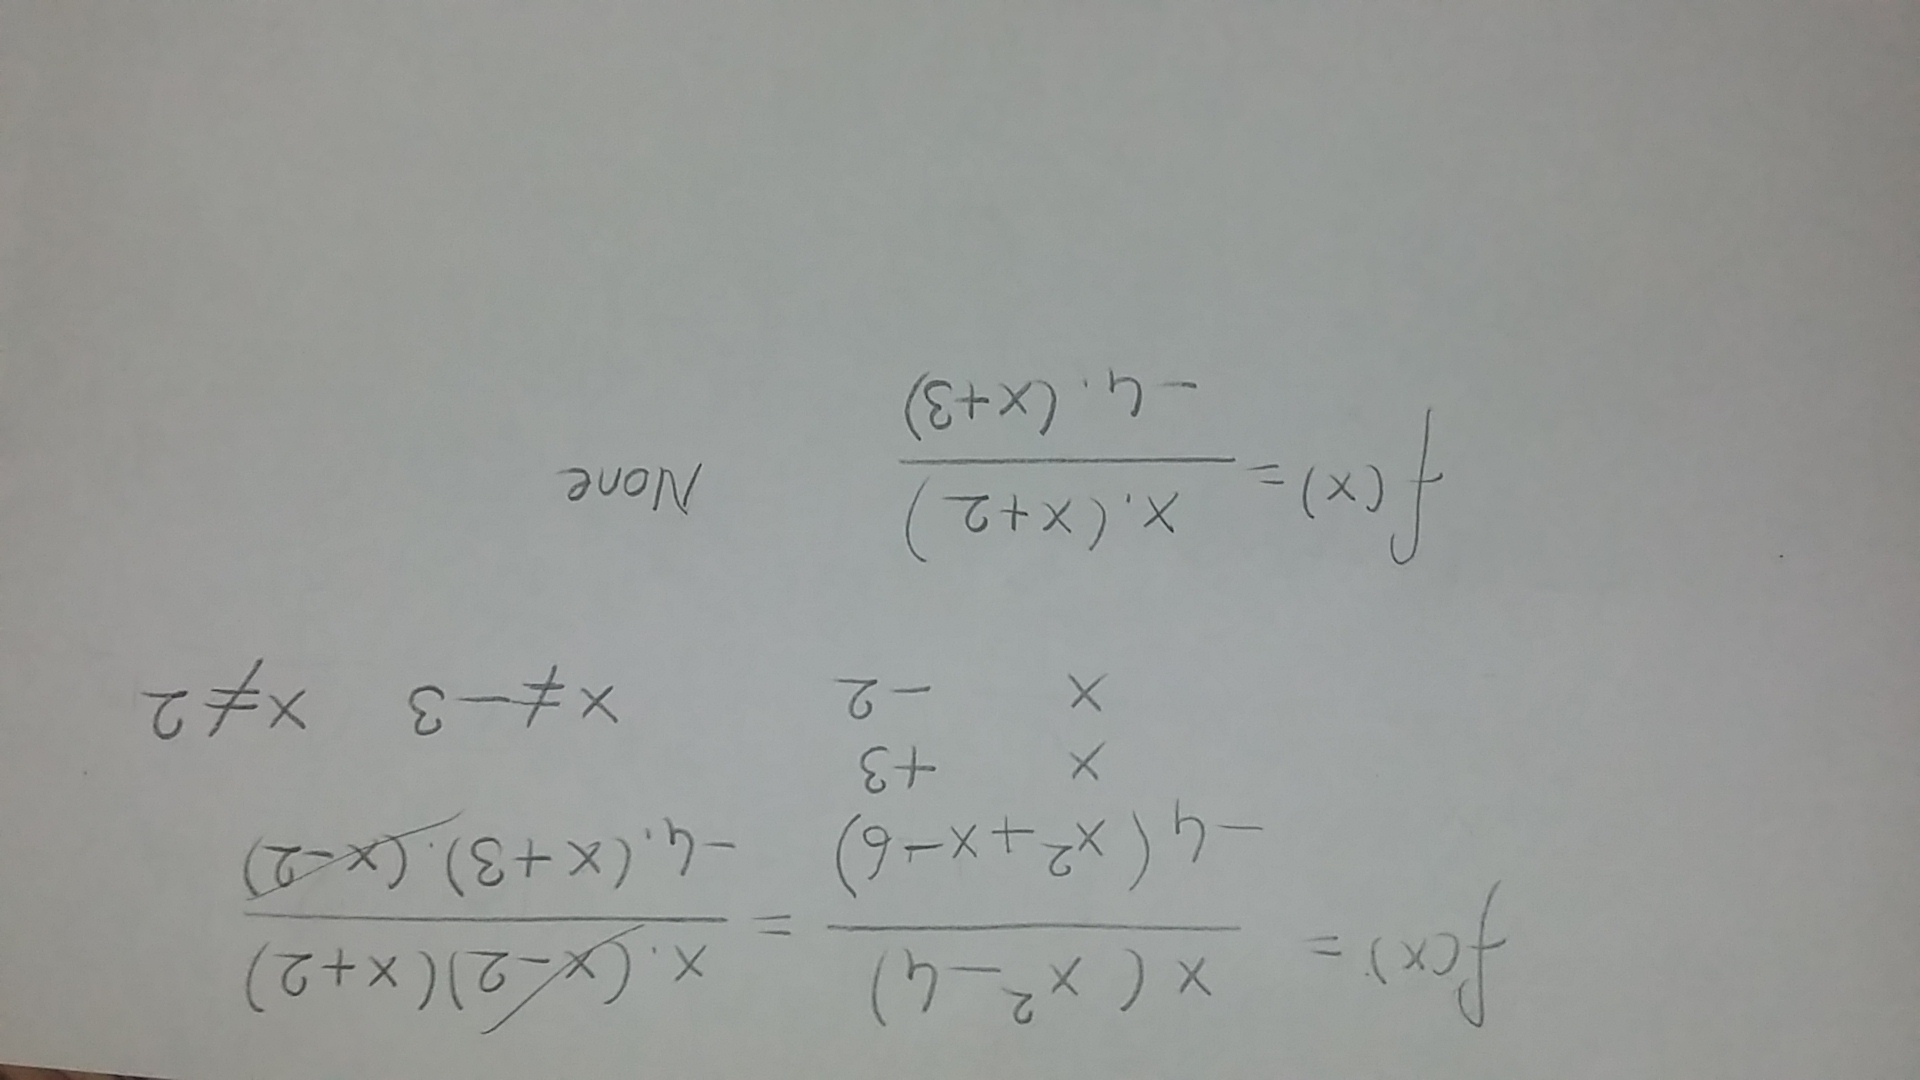 f(x) = x(x²-4) / -4(x²+x-6) = x.(x-2)(x+2) / -4.(x+3).(x-2)
x +3
x -2 x≠-3 x≠2
f(x) = x.(x+2) / -4.(x+3) None